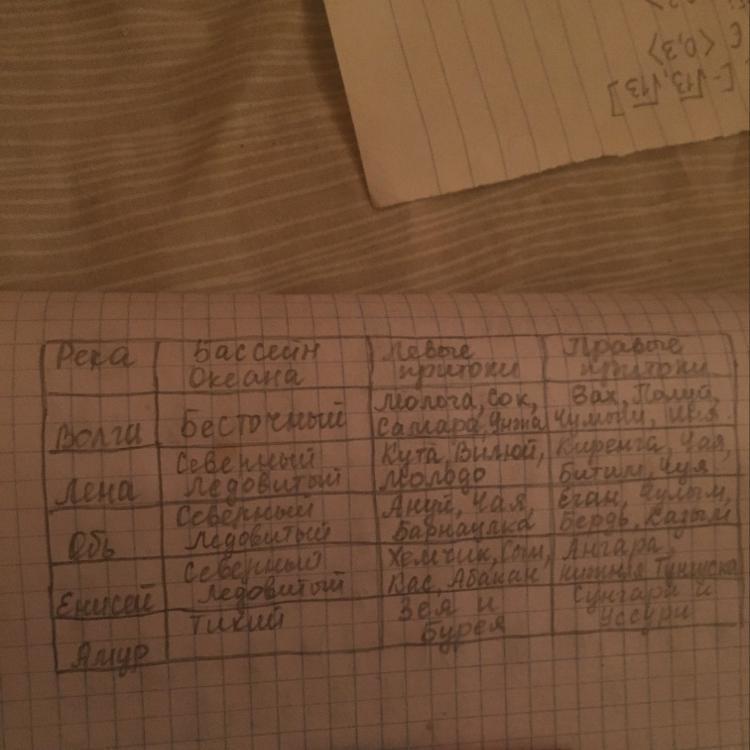 [-√13, √13]
⟨0,3⟩
Река
Бассейн
Океана
Левые
притоки
Правые
притоки
Волга
Бесточный
Молога, Сок,
Самара, Унжа
Вах, Полуй,
Чумыш,
Лена
Северный
Ледовитый
Кута, Вилюй,
Молодо
Киренга, Чая,
Витим, Чуя
Обь
Северный
Ледовитый
Ануй, Чая,
Барнаулка
Еган, Чулым,
Бердь, Казым
Енисей
Северный
Ледовитый
Хемчик,
Кас, Абакан
Ангара,
Нижняя Тунгуска
Амур
Тихий
Зея и
Бурея
Сунгари и
Уссури